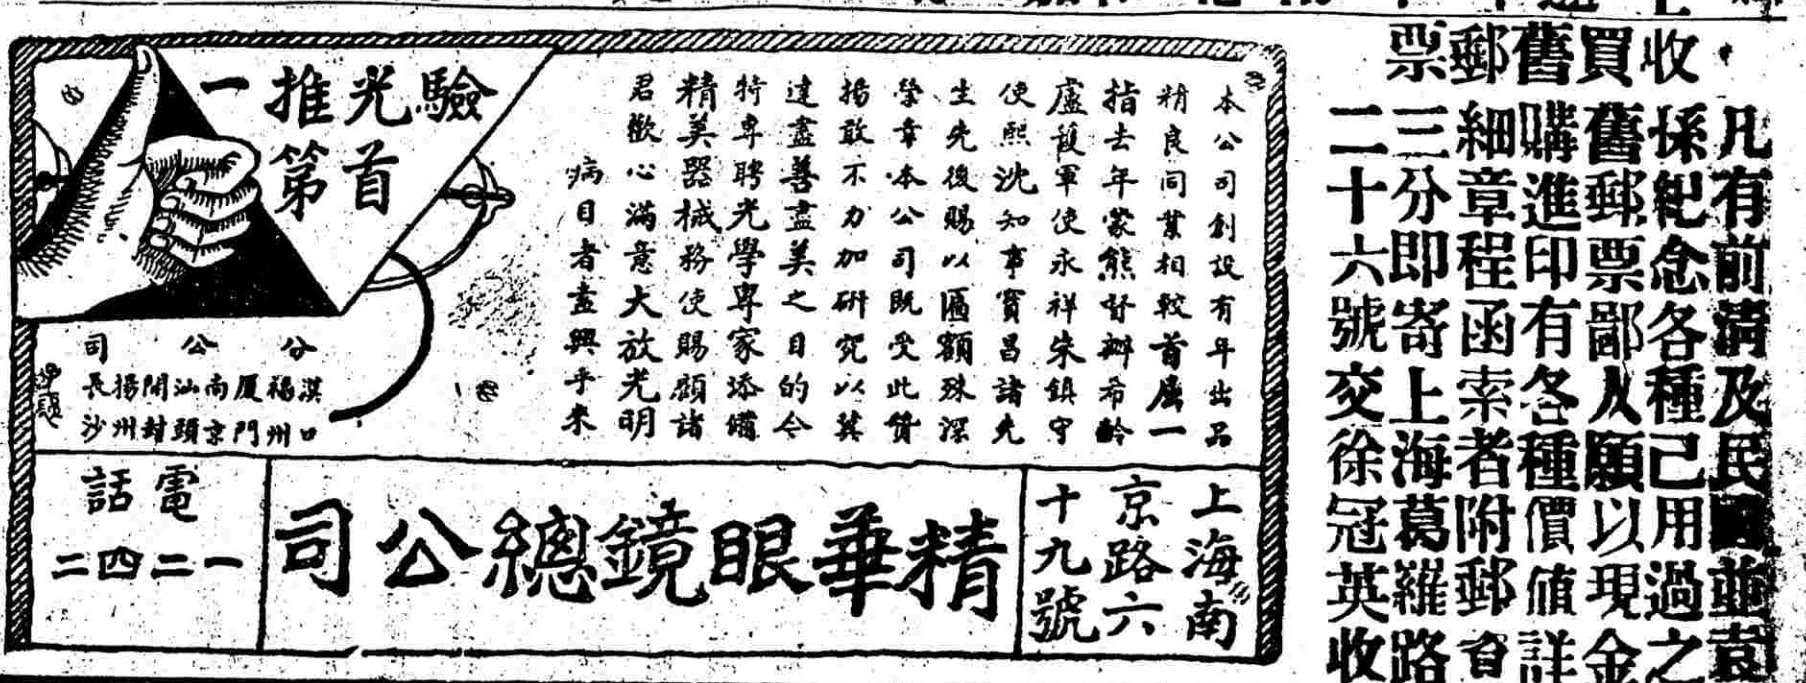 收買舊郵票
凡有前清及民國並袁
孫紀念各種已用過之
舊郵票鄙人願以現金
購進印有各種價值詳
細章程函索者附郵資
三分即寄上海葛羅路
二十六號交徐冠英收
驗
光首
推第
一
本公司創設有年出品
精良同業相較首屈一
指去年蒙熊督辦希齡
盧護軍使永祥朱鎮守
使熙沈知事寶昌諸先
生先後賜以匾額殊深
榮幸本公司既受此贊
揚敢不力加研究以冀
達盡善盡美之目的今
特專聘光學專家添備
精美器械務使賜顧諸
君歡心滿意大放光明
病目者盍興乎來
分公司
漢口
福州
厦門
南京
汕頭
開封
揚州
長沙
上海南
京路六
十九號
精華眼鏡總公司
電話
一二四二